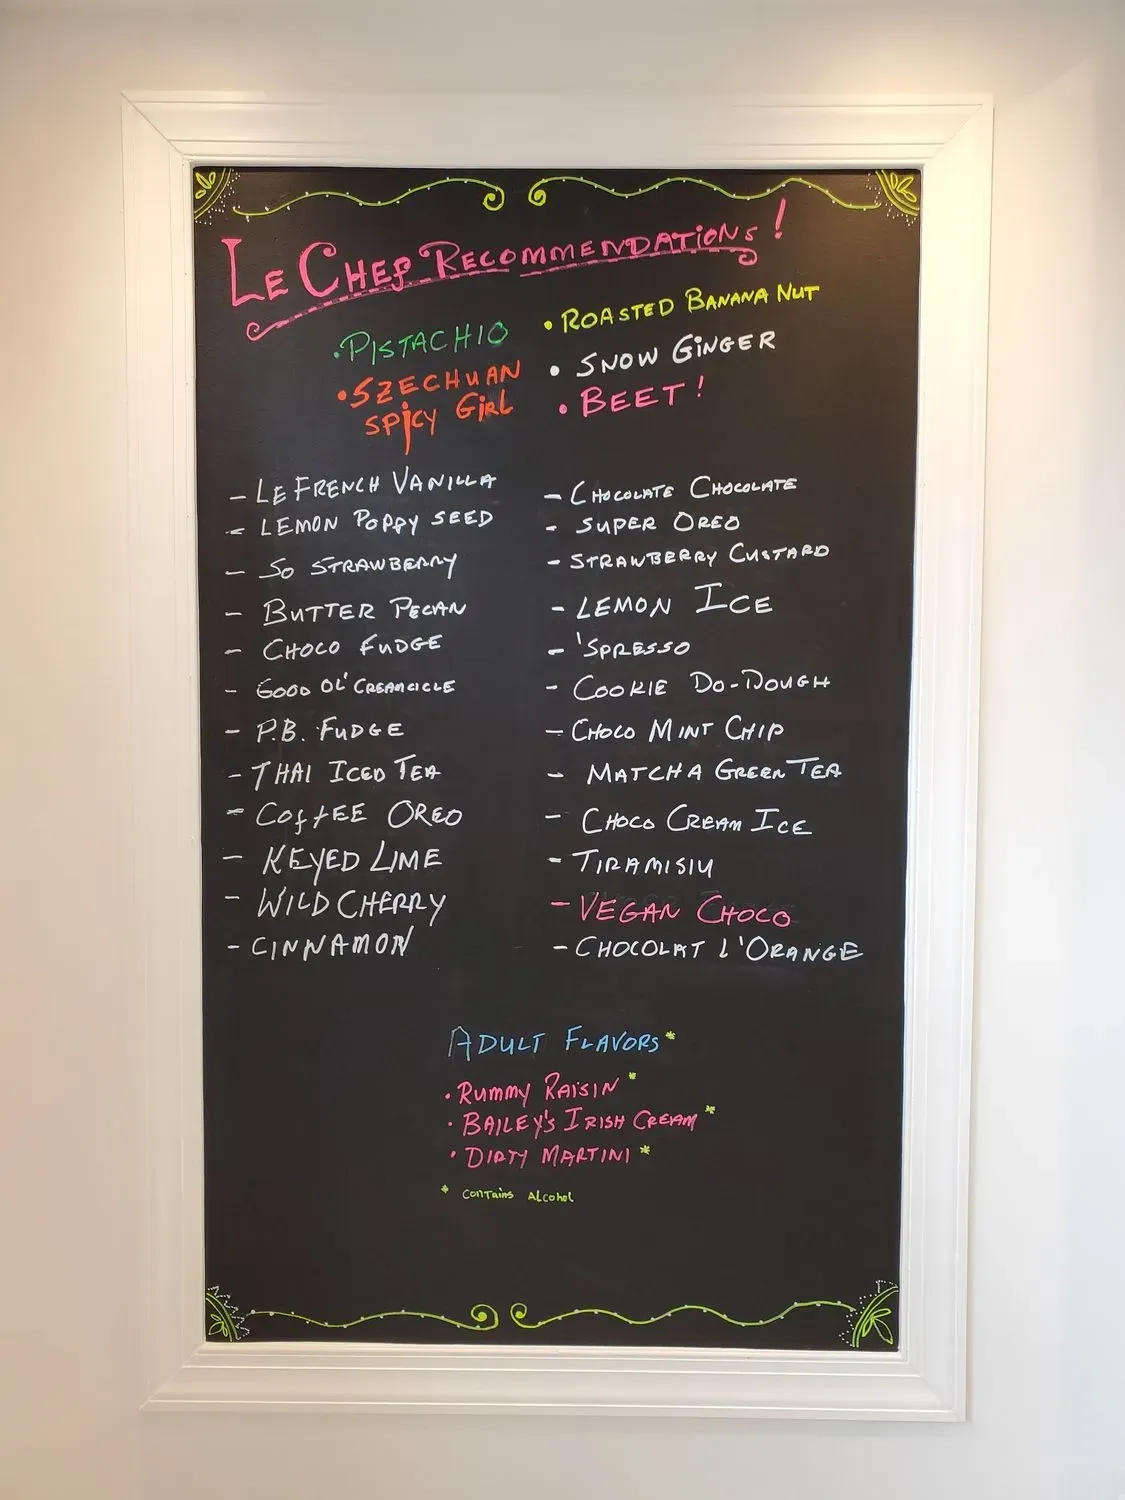 LE CHEF RECOMMENDATIONS!
• PISTACHIO
• SZECHUAN
SPICY GIRL
• ROASTED BANANA NUT
• SNOW GINGER
• BEET!
- LE FRENCH VANILLA
- LEMON POPPY SEED
- SO STRAWBERRY
- BUTTER PECAN
- CHOCO FUDGE
- GOOD OL' CREAMCICLE
- P.B. FUDGE
- THAI ICED TEA
- COFFEE OREO
- KEYED LIME
- WILD CHERRY
- CINNAMON
- CHOCOLATE CHOCOLATE
- SUPER OREO
- STRAWBERRY CUSTARD
- LEMON ICE
- 'SPRESSO
- COOKIE DO-DOUGH
- CHOCO MINT CHIP
- MATCHA GREEN TEA
- CHOCO CREAM ICE
- TIRAMISIU
- VEGAN CHOCO
- CHOCOLAT L'ORANGE
ADULT FLAVORS*
• RUMMY RAISIN *
• BAILEY'S IRISH CREAM *
• DIRTY MARTINI *
* CONTAINS ALCOHOL